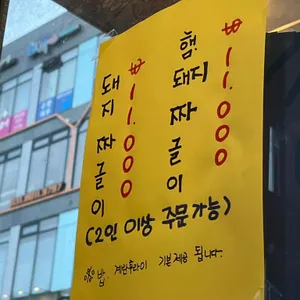 돼지 짜글이
₩11.000
햄.돼지 짜글이
₩11.000
(2인 이상 주문가능)
밥, 계란후라이 기본제공 됩니다.